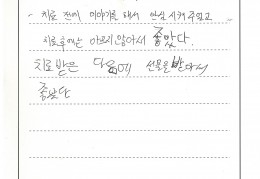 - 치료 전에 이야기를 해서 안심 시켜 주었고
치료후에는 아프지 않아서 좋았다.
치료받은 다음에 선물을 받아서
좋았다